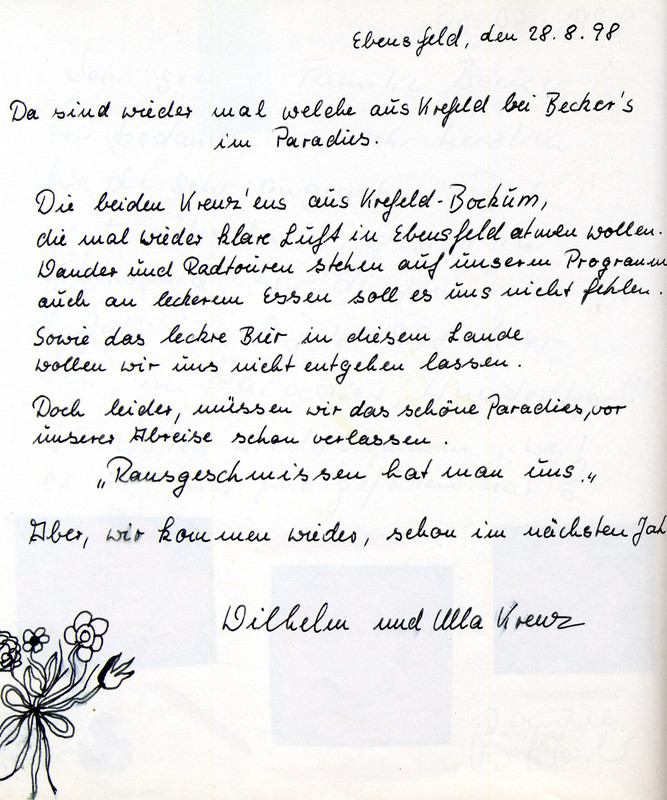 Ebensfeld, den 28.8.98
Da sind wieder mal welche aus Krefeld bei Becker's
im Paradies.
Die beiden Kreuz'ens aus Krefeld-Bockum,
die mal wieder klare Luft in Ebensfeld atmen wollen.
Wander und Radtouren stehen auf unserem Programm
auch an leckerem Essen soll es uns nicht fehlen.
Sowie das leckre Bier in diesem Lande
wollen wir uns nicht entgehen lassen.
Doch leider, müssen wir das schöne Paradies, vor
unserer Abreise schon verlassen.
„Rausgeschmissen hat man uns.„
Aber, wir kommen wieder, schon im nächsten Jah
Wilhelm und Ulla Kreuz